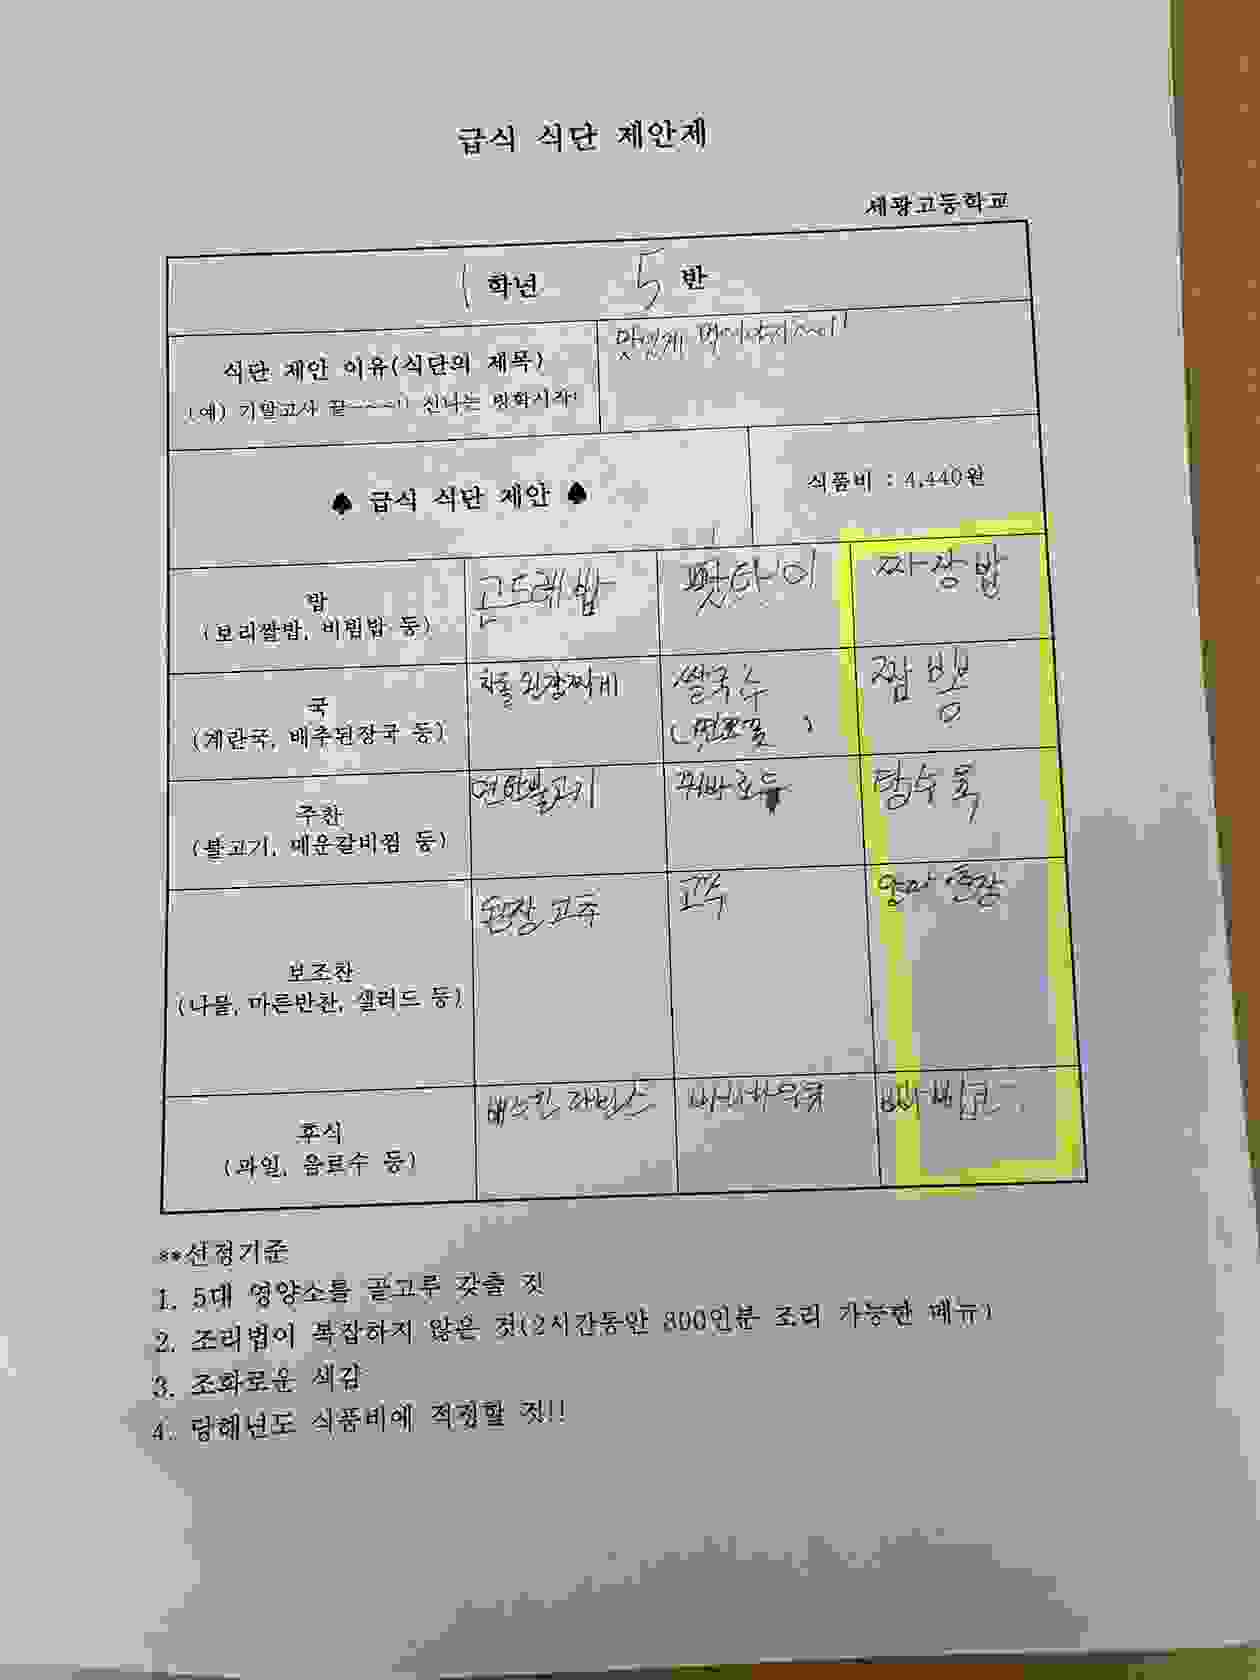 급식 식단 제안제
세광고등학교
1 학년 5 반
식단 제안 이유(식단의 제목)
(예) 기말고사 끝~~~!! 신나는 방학시작!
맛있게
급식 식단 제안
식품비 : 4,440원
밥
(보리쌀밥, 비빔밥 등)
곤드레밥
팟타이
짜장밥
국
(계란국, 배추된장국 등)
차돌 된장찌게
쌀국수
짬뽕
주찬
(불고기, 매운갈비찜 등)
언양불고기
꿔바로우
탕수육
보조찬
(나물, 마른반찬, 샐러드 등)
된장 고추
고수
양파 춘장
후식
(과일, 음료수 등)
베스킨 라빈스
빠삐코
**선정기준
1. 5대 영양소를 골고루 갖출 것
2. 조리법이 복잡하지 않은 것(2시간동안 800인분 조리 가능한 메뉴)
3. 조화로운 색감
4. 당해년도 식품비에 적정할 것!!